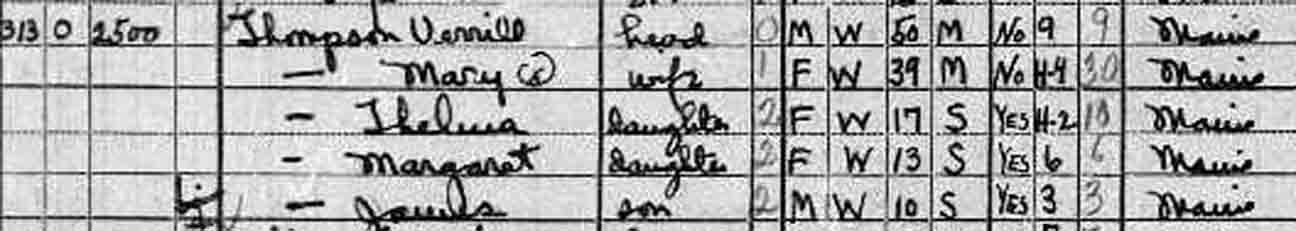 313 0 2500 Thompson Verrill head 0 M W 50 M No 9 9 Maine
— Mary @ wife 1 F W 39 M No H-4 30 Maine
— Thelma daughter 2 F W 17 S Yes H-2 10 Maine
- Margaret daughter 2 F W 13 S Yes 6 6 Maine
— James son 2 M W 10 S Yes 3 3 Maine